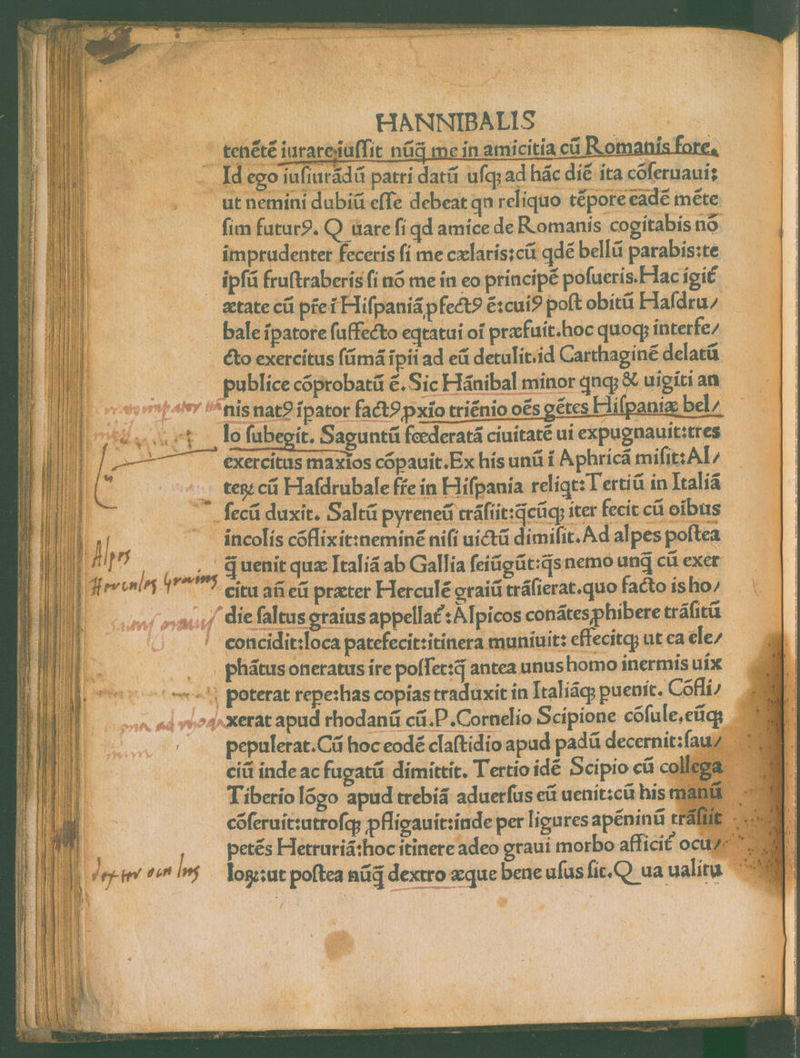 HANNIBALIS
tenẽtẽ iurare iuſſit nũq̃ me in amicitia cũ Romanis fore.
Id ego iuſiurãdũ patri datũ uſqꝫ ad hãc diẽ ita cõſeruaui:
ut nemini dubiũ eſſe debeat qn reliquo tẽpore eadẽ mẽte
ſim futurꝰ. Q uare ſi qd amice de Romanis cogitabis nõ
imprudenter feceris ſi me cælaris:cũ qdẽ bellũ parabis:te
ipſũ fruſtraberis ſi nõ me in eo principẽ poſueris.Hac igit᷑
ætate cũ pr̃e ĩ Hiſpaniã ꝓfectꝰ ẽ:cuiꝰ poſt obitũ Haſdru/
bale ĩpatore ſuffecto eqtatui oĩ præfuit.hoc quoqꝫ interfe/
cto exercitus ſũmã ĩpii ad eũ detulit.id Carthaginẽ delatũ
publice cõprobatũ ẽ. Sic Hãnibal minor qnqꝫ & uigĩti an
nis natꝰ ĩpator factꝰ ꝓxĩo triẽnio oẽs gẽtes Hiſpaniæ bel/
lo ſubegit. Saguntũ fœderatã ciuitatẽ ui expugnauit:tres
exercitus maxĩos cõpauit.Ex his unũ ĩ Aphricã miſit:Al/
teꝝ cũ Haſdrubale fr̃e in Hiſpania reliqt:Tertiũ in Italiã
ſecũ duxit. Saltũ pyreneũ trãſiit:q̃cũqꝫ iter fecit cũ oĩbus
incolis cõflixit:neminẽ niſi uictũ dimiſit.Ad alpes poſtea
Alpes
q̃ uenit quæ Italiã ab Gallia ſeiũgũt:q̃s nemo unq̃ cũ exer
Hercules Graius
citu añ eũ præter Herculẽ graiũ trãſierat.quo facto is ho/
die ſaltus graius appellat᷑:Alpicos conãtes ꝓhibere trãſitũ
concidit:loca patefecit:itinera muniuit: effecitqꝫ ut ea ele/
phãtus oneratus ire poſſet:q̃ antea unus homo inermis uix
poterat repe:has copias traduxit in Italiãqꝫ puenit. Cõfli/
xerat apud rhodanũ cũ.P.Cornelio Scipione cõſule.eũqꝫ
pepulerat.Cũ hoc eodẽ claſtidio apud padũ decernit:ſau/
ciũ inde ac fugatũ dimittit. Tertio idẽ Scipio cũ collega
Tiberio lõgo apud trebiã aduerſus eũ uenit:cũ his manũ
cõſeruit:utroſqꝫ ꝓfligauit:inde per ligures apẽninũ trãſiit
petẽs Hetruriã:hoc itinere adeo graui morbo afficit᷑ ocu/
dexter oculus
loꝝ:ut poſtea nũq̃ dextro æque bene uſus ſit.Q ua ualitu